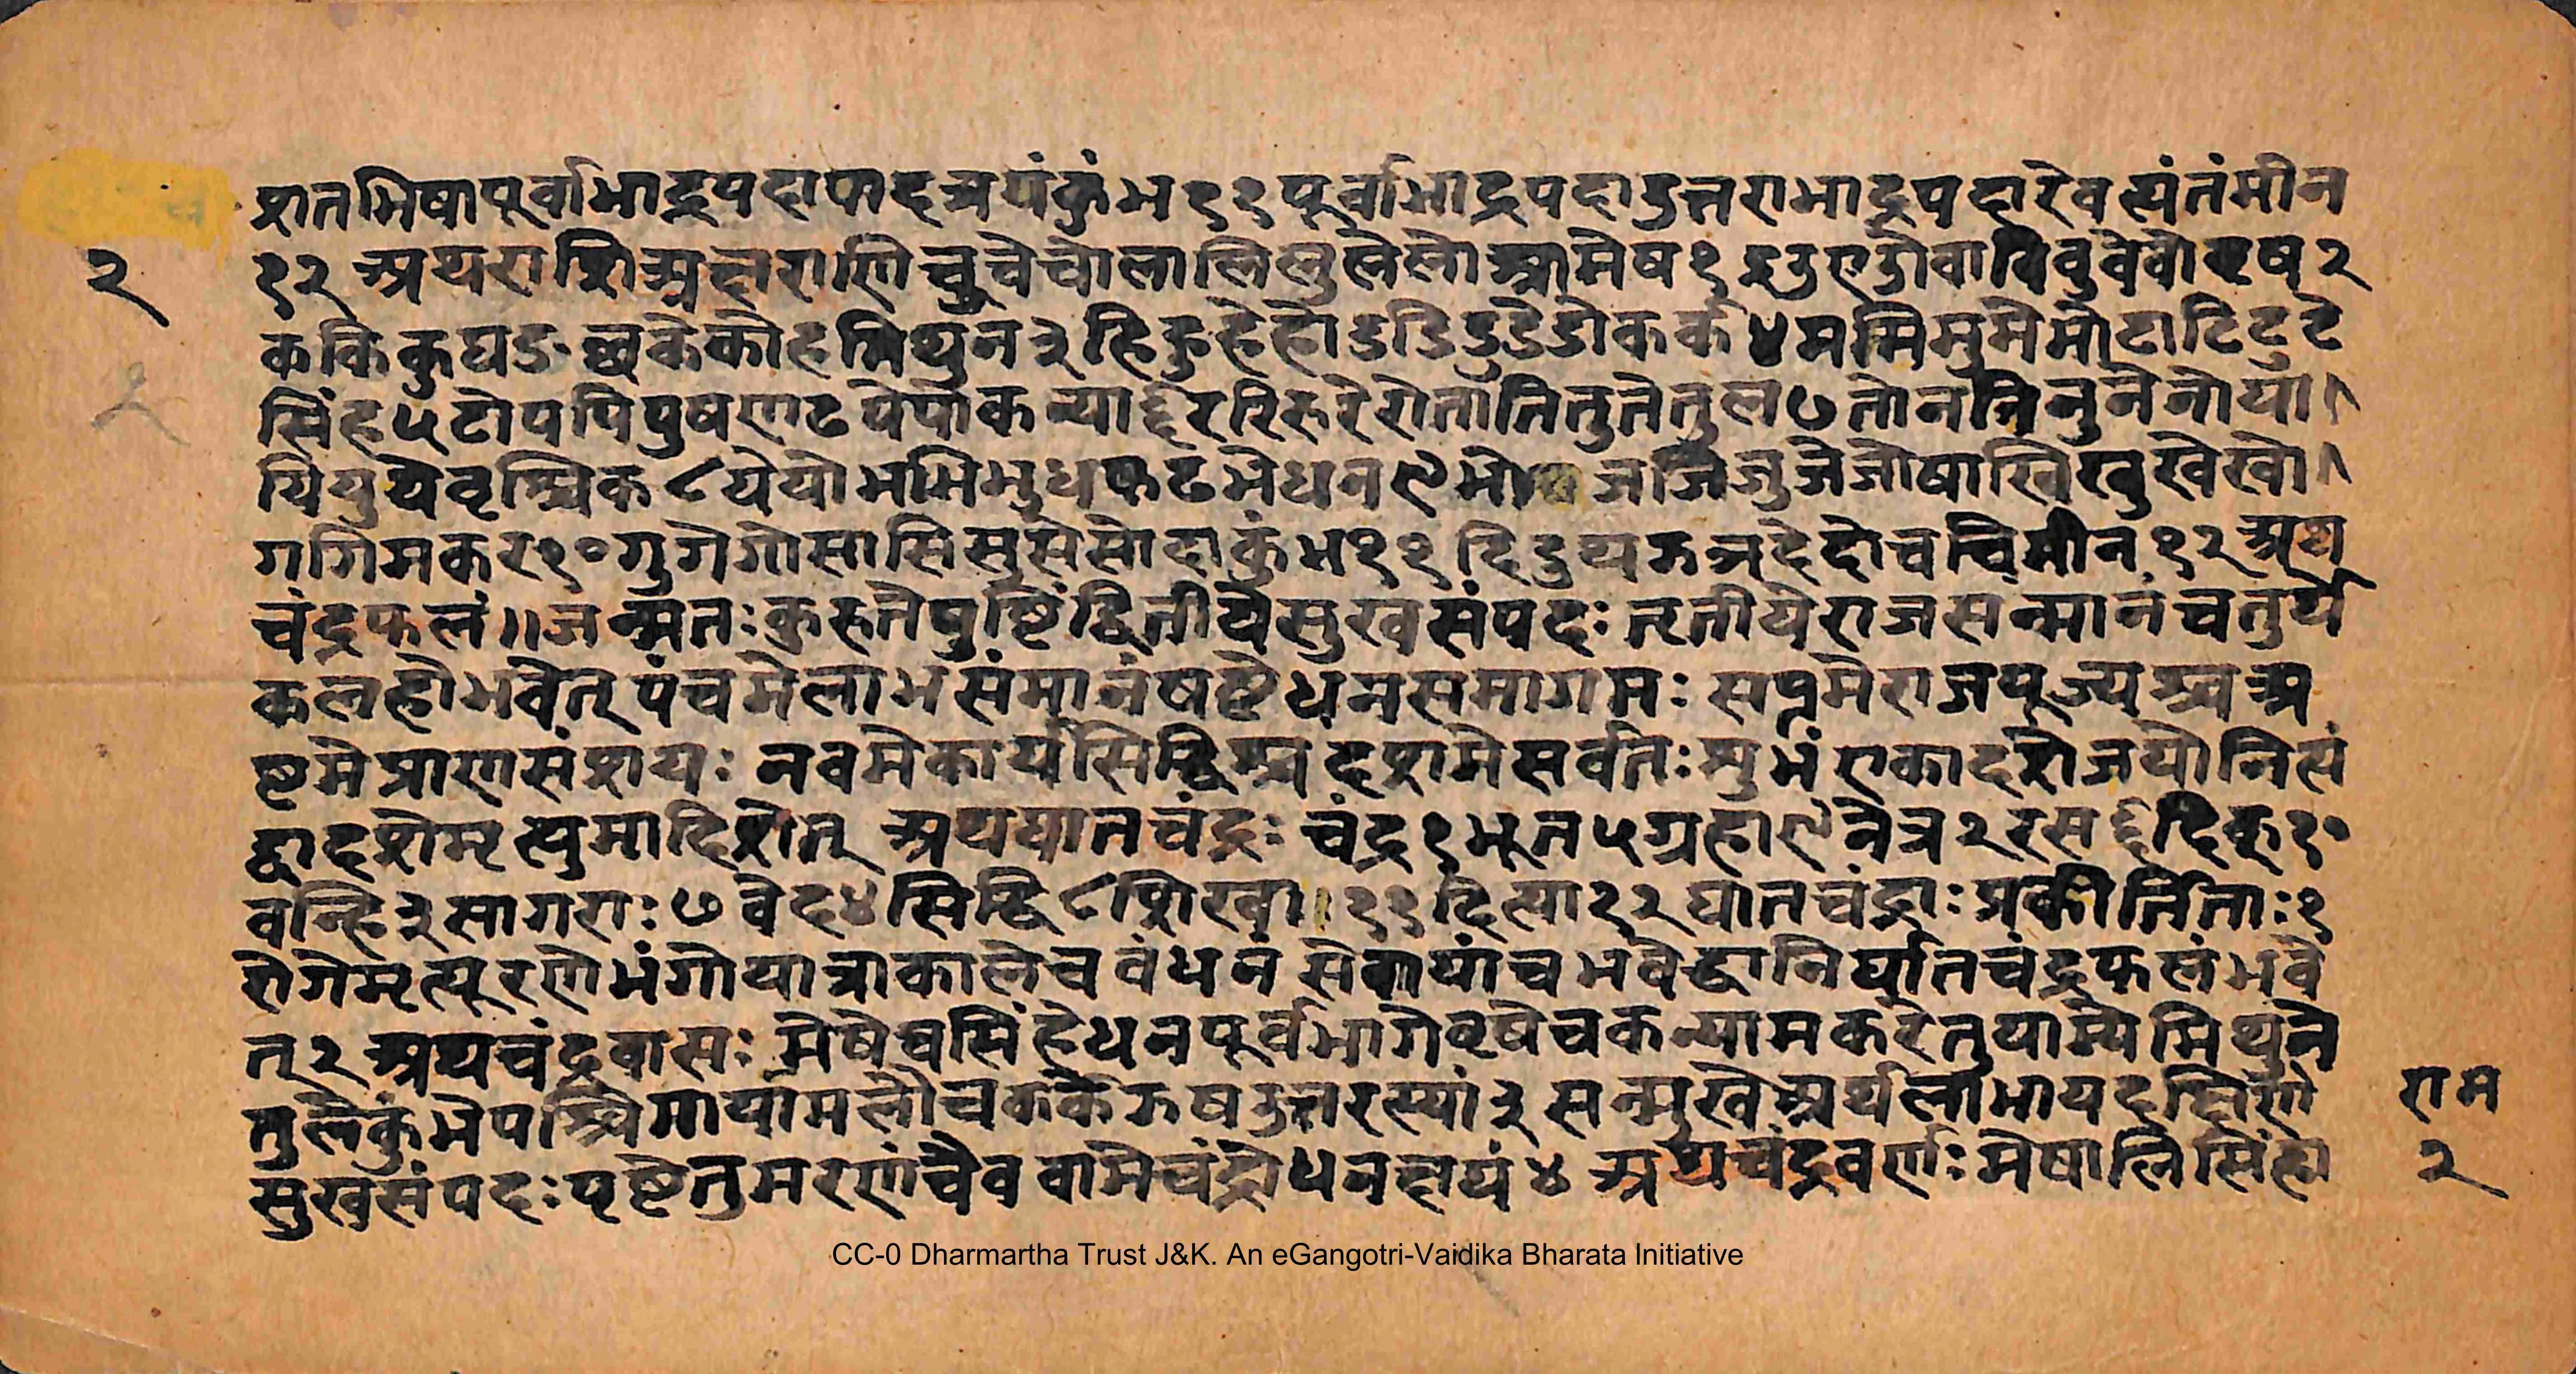 शतभिषापूर्वाभाद्रपदापादत्रयंकुंभ ११ पूर्वाभाद्रपदाउत्तराभाद्रपदारेवत्यंतंमीन
२ १२ अथराशिअक्षराणि चुचेचोलालिलुलेलोआमेष १ इउएओवाविवुवेवोवृष २
ककिकुघङछकेकोहमिथुन ३ हिहुहेहोडडिडुडेडोकर्क ४ ममिमुमेमोटाटिटुटे
सिंह ५ टोपपिपुषणाठपेपोकन्या ६ ररिरुरेरोतातितुतेतुल ७ तोननिनुनेनोया
यियुयेवृश्चिक ८ येयोभभिभुधफढभेधन ९ भो जजिजुजेजोषाखिखुखेखो
गगिमकर १० गुगेगोसासिसुसेसोदाकुंभ ११ दिदुथझञदेदोचचिमीन १२ अथ
चंद्रफलं ॥ जन्मतः कुरुतेपुष्टिंद्वितीयेसुखसंपदः तृतीयेराजसन्मानंचतुर्थे
कलहोभवेत् पंचमेलाभसंमानंषष्टेधनसमागमः सप्तमेराजपूज्यश्चअ
ष्टमेप्राणसंशयः नवमेकार्यसिद्धिश्चदशमेसर्वतःशुभं एकादशेजयोनित्यं
द्वादशेमृत्युमादिशेत् अथघातचंद्रः चंद्र १ भूत ५ ग्रहा ९ नेत्र २ रस ६ दिक् १०
वन्हि ३ सागराः ७ वेद ४ सिद्धि ८ शिखा ११ दित्या १२ घातचंद्राः प्रकीर्तिताः १
रोगेमृत्यूरणेभंगोयात्राकालेचवंधनं सेवायांचभवेद्धानिर्घातचंद्रफलंभवे
त् २ अथचंद्रवासः मेषेचसिंहेधनपूर्वभागेवृषेचकन्यामकरेतुयाम्ये मिथुने
तुलेकुंभेपश्चिमायामलौचकर्केझषउत्तरस्यां ३ सन्मुखेअर्थलाभायदक्षिणे
सुखसंपदः पृष्टेतुमरणंचैववामेचंद्रोधनक्षयं ४ अथचंद्रवर्णः मेषालिसिंहा
राम
२
CC-0 Dharmartha Trust J&K. An eGangotri-Vaidika Bharata Initiative